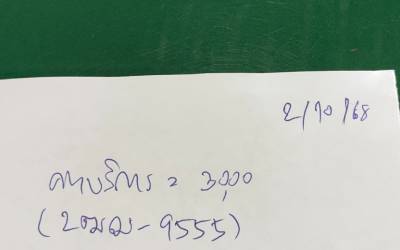 2/10/68
ค่าบริการ = 3,000
(2ฒฌ-9555)